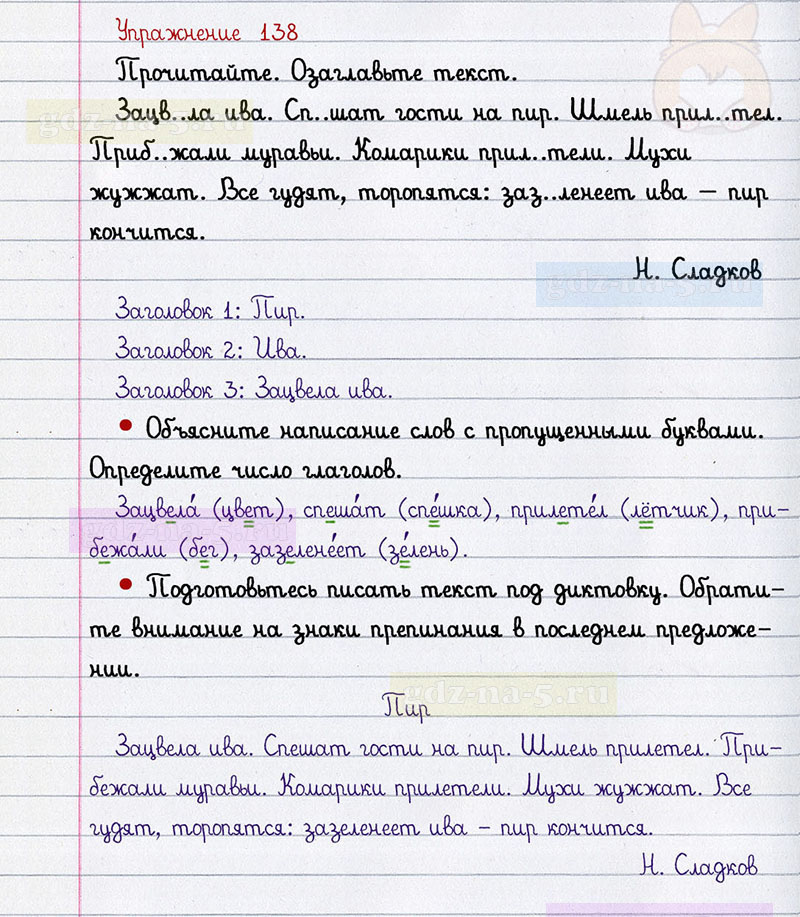 Упражнение 138
Прочитайте. Озаглавьте текст.
Зацв..ла ива. Сп..шат гости на пир. Шмель прил..тел.
gdz-na-5.ru
Приб..жали муравьи. Комарики прил..тели. Мухи
жужжат. Все гудят, торопятся: заз..ленеет ива – пир
кончится.
Н. Сладков
gdz-na-5.ru
Заголовок 1: Пир.
Заголовок 2: Ива.
Заголовок 3: Зацвела ива.
• Объясните написание слов с пропущенными буквами.
Определите число глаголов.
Зацвела́ (цвет), спеша́т (спе́шка), прилете́л (лётчик), при-
gdz-na-5.ru
бежа́ли (бег), зазелене́ет (зе́лень).
• Подготовьтесь писать текст под диктовку. Обрати-
те внимание на знаки препинания в последнем предложе-
нии.
gdz-na-5.ru
Пир
Зацвела ива. Спешат гости на пир. Шмель прилетел. При-
бежали муравьи. Комарики прилетели. Мухи жужжат. Все
гудят, торопятся: зазеленеет ива – пир кончится.
Н. Сладков